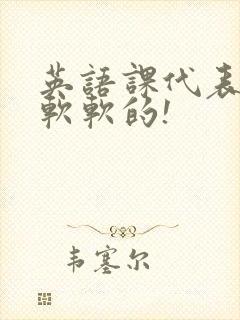 英語課代表
軟軟的!
韦塞尔